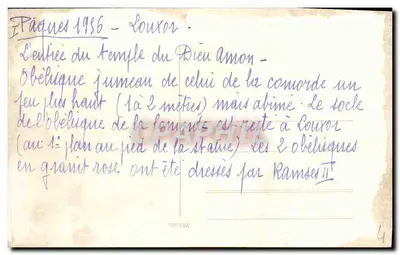 Pâques 1936 - Louxor.
L'entrée du temple du Dieu Amon -
Obélisque jumeau de celui de la comorde un
peu plus haut (1 à 2 mètres) mais abimé. Le socle
de l'obélisque de la est resté à Louxor
(au 1er plan au pied de la statue) Les 2 obélisques
en granit rose ont été dressés par Ramses II
4